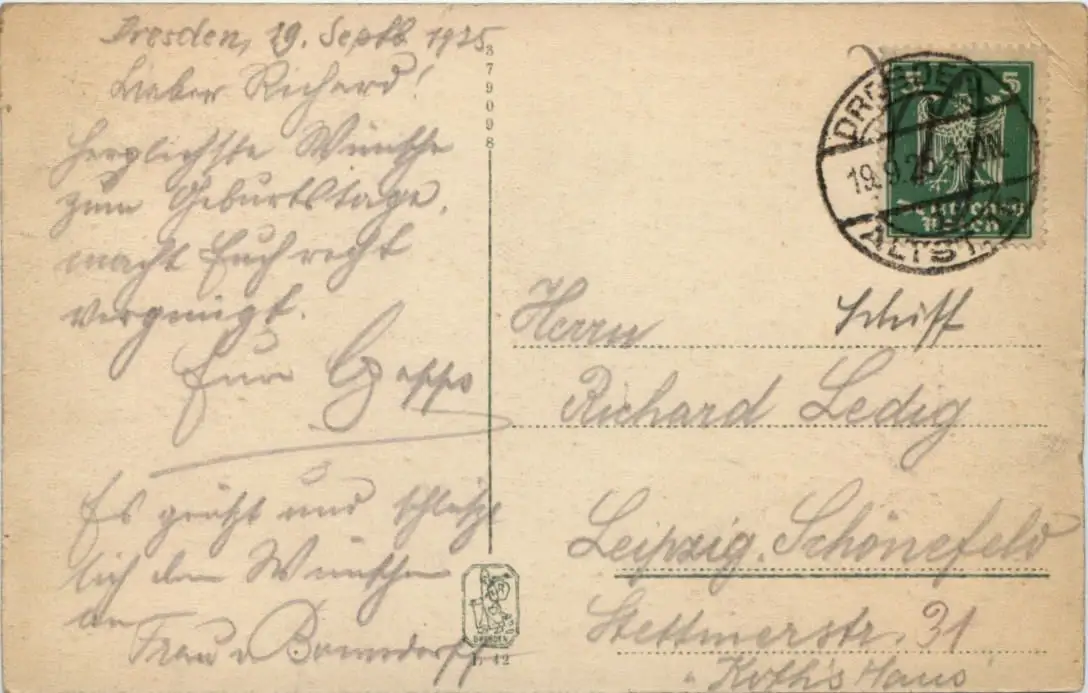 Dresden, 19. Septb. 1925
Lieber Richard!
Herzlichste Wünsche
zum Geburtstage,
macht Euch recht
vergnügt.
Eure
Es grüßt und schließt
sich den Wünschen
an
Frau v
379098
DRESDEN
L 42
5
Deutsches
Reich
DRESDEN
19.9.25
ALTST.
Herrn
Schiff
Richard Ledig
Leipzig. Schönefeld
Stettinerstr. 31
"Koth's Haus"